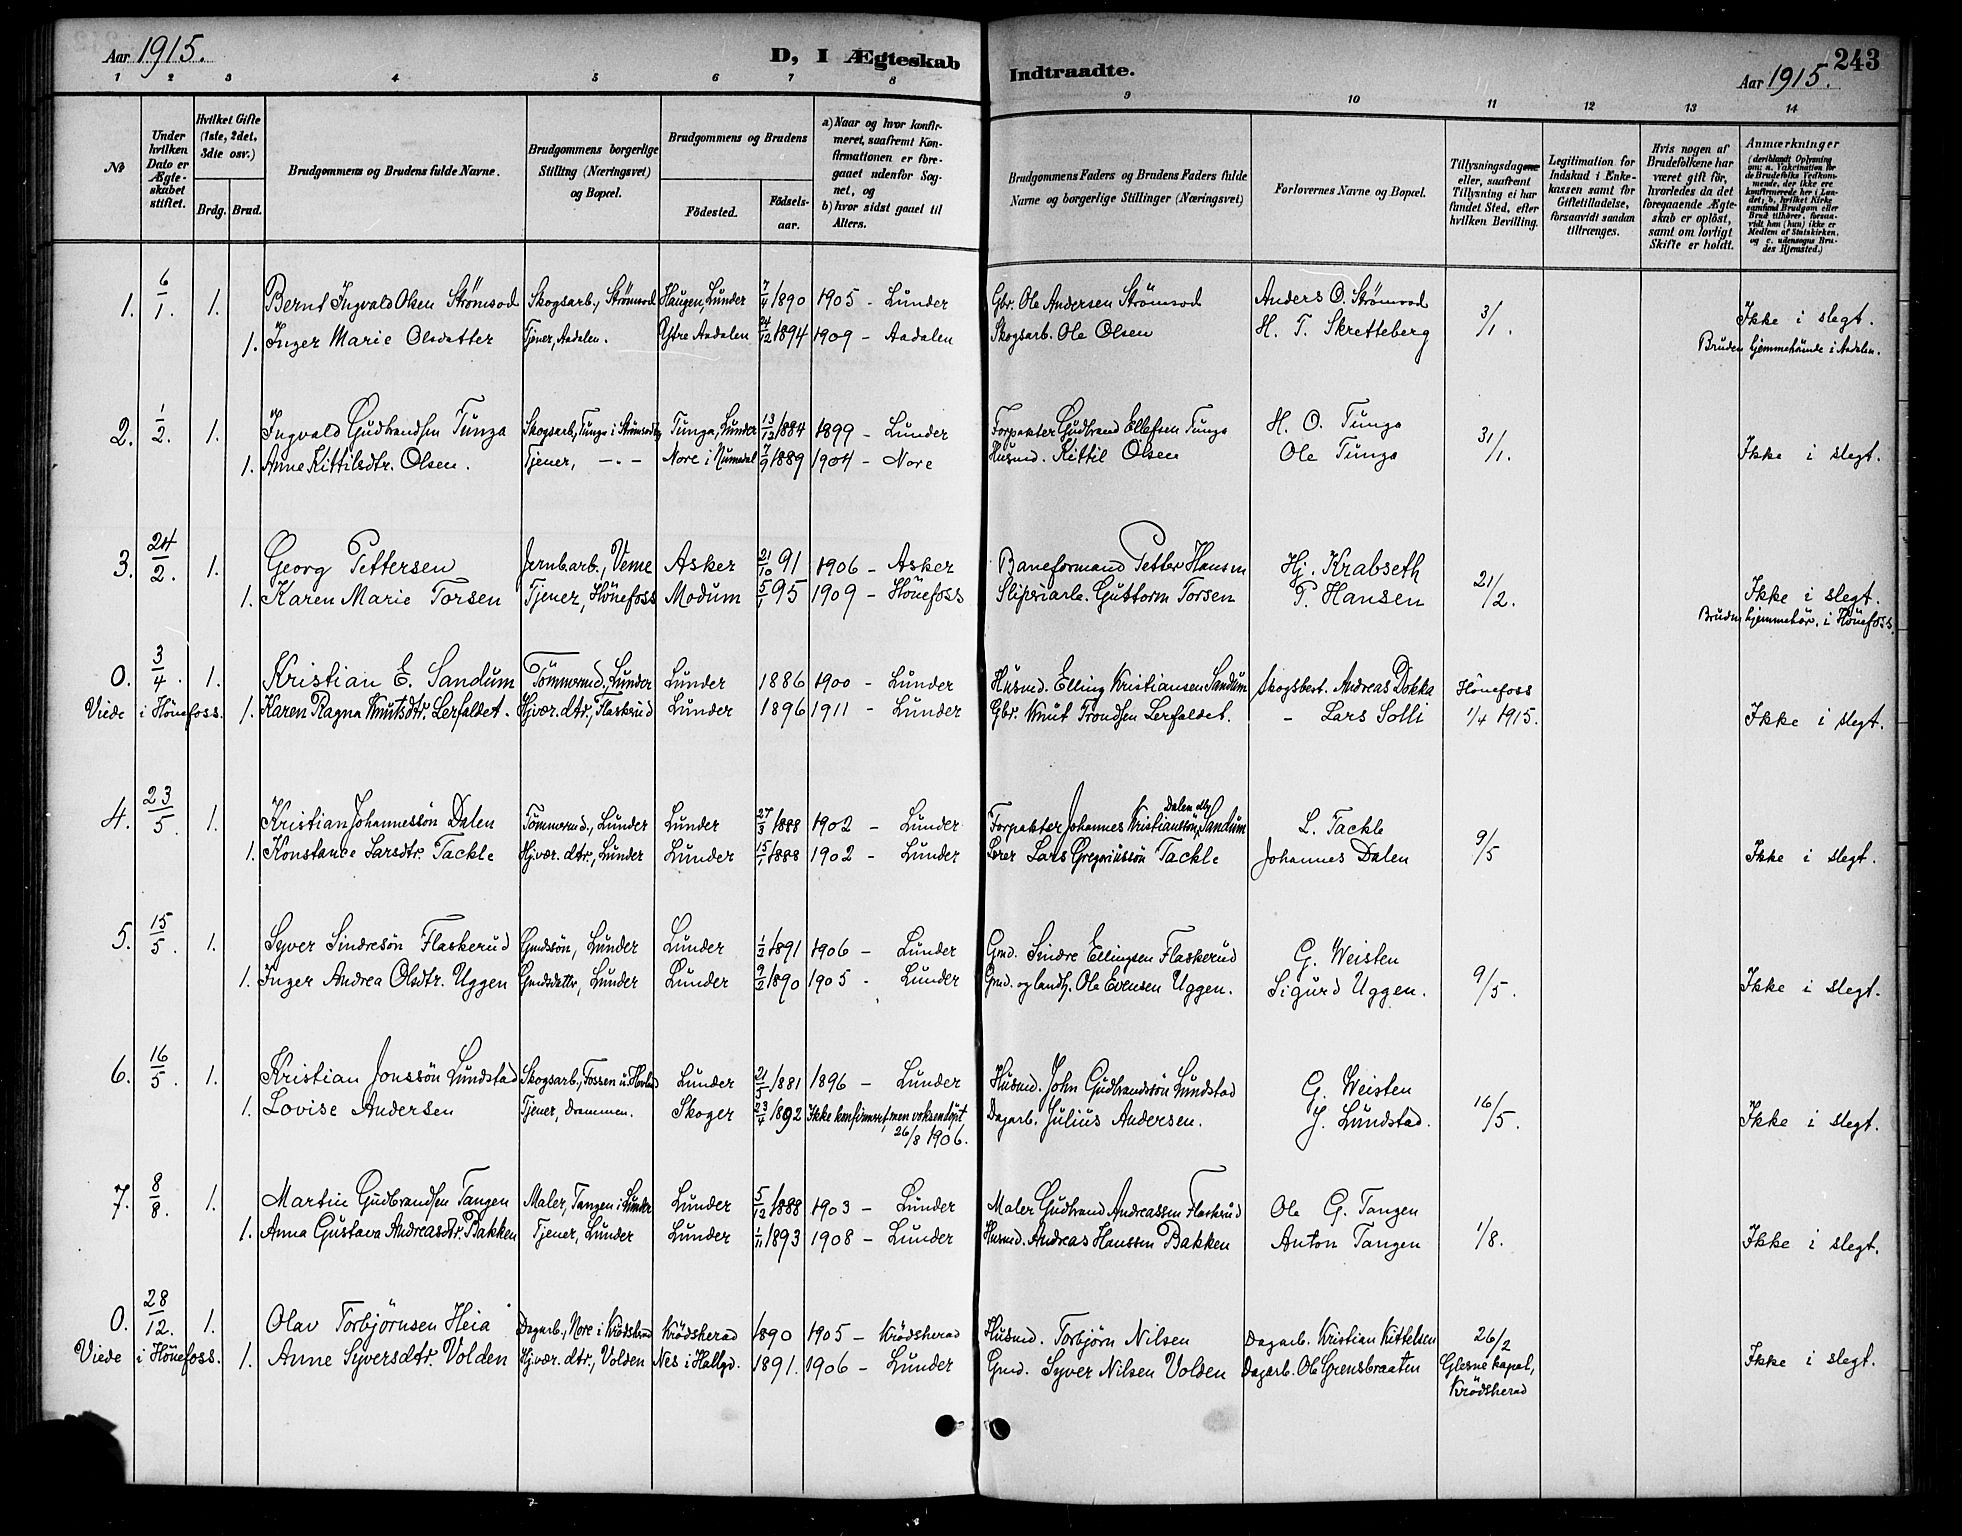 Aar 1915.
D, I Ægteskab
Indtraadte.
Aar 1915.
243
1 2 3 4 5 6 7 8 9 10 11 12 13 14
No
Under hvilken Dato er Ægteskabet stiftet.
Hvilket Gifte (1ste, 2det, 3die osv.)
Brdg. Brud.
Brudgommens og Brudens fulde Navne.
Brudgommens borgerlige Stilling (Næringsvei) og Bopæl.
Brudgommens og Brudens
Födested.
Födselsaar.
a) Naar og hvor konfirmeret, saafremt Konfirmationen er foregaaet udenfor Sognet, og
b) hvor sidst gaaet til Alters.
Brudgommens Faders og Brudens Faders fulde Navne og borgerlige Stillinger (Næringsvei)
Forlovernes Navne og Bopæl.
Tillysningsdagene eller, saafremt Tillysning ei har fundet Sted, efter hvilken Bevilling.
Legitimation for Indskud i Enkekassen samt for Giftetilladelse, forsaavidt saadan tiltrænges.
Hvis nogen af Brudefolkene har været gift för, hvorledes da det foregaaende Ægteskab er oplöst, samt om lovligt Skifte er holdt.
Anmærkninger
(deriblandt Oplysning om: a. Vakcination for de Brudefolks Vedkommende, der ikke ere konfirmerede her i Landet; b. hvilket Kirkesamfund Brudgom eller Brud tilhörer, forsaavidt han (hun) ikke er Medlem af Statskirken, og c. udensogns Brudes Hjemsted.)
1. 6/1. 1. Bernt Ingvald Olsen Strömsod Skogsarb., Strömsod Haugen, Lunder 7/4 1890 1905 - Lunder Gbr. Ole Andersen Strömsod Anders O. Strömsod 3/1. Ikke i slegt.
1. Inger Marie Olsdatter Tjener, Aadalen. Ytre Aadalen 24/12 1894 1909 - Aadalen Skogsarb. Ole Olsen H. T. Skretteberg Bruden hjemmehörende i Aadalen.
2. 1/2. 1. Ingvald Gudbrandsen Tunga Skogsarb., Tunga i Strömsoddg Tunga, Lunder 13/12 1884 1899 - Lunder Forpakter Gudbrand Ellefsen Tunga H. O. Tunga 31/1.
1. Anne Kittilsdtr. Olsen. Tjener, -.- Nore i Numedal 7/9 1889 1904 - Nore Husmd. Kittil Olsen Ole Tunga Ikke i slegt.
3. 24/2. 1. Georg Pettersen Jernb.arb., Veme Asker 21/10 91 1906 - Asker Baneformand Petter Hansen Hj. Krabseth 21/2.
1. Karen Marie Torsen Tjener, Hönefoss Modum 5/1 95 1909 - Hönefoss Sliperiarb. Guttorm Torsen P. Hansen Ikke i slegt.
Bruden hjemmehör. i Hönefoss.
0. 3/4. 1. Kristian E. Sandum Tömmermd., Lunder Lunder 1886 1900 - Lunder Husmd. Elling Kristiansen Sandum Skogsbest. Andreas Dokka Hönefoss
Viede i Hönefoss. 1. Karen Ragna Knutsdtr. Lerfaldet. Hjvær. dtr., Flaskrud Lunder 1896 1911 - Lunder Gbr. Knut Trondsen Lerfaldet. - Lars Solli 1/4 1915. Ikke i slegt.
4. 23/5. 1. Kristian Johannessön Dalen Tömmermd., Lunder Lunder 27/3 1888 1902 - Lunder Forpakter Johannes Kristianssön Dalen dlg Sandum L. Tackle 9/5
1. Konstance Larsdtr. Tackle Hjvær. dtr., Lunder Lunder 15/1 1888 1902 - Lunder Lærer Lars Gregoriussön Tackle Johannes Dalen Ikke i slegt.
5. 15/5. 1. Syver Sindresön Flaskerud Gmdssön, Lunder Lunder 1/2 1891 1906 - Lunder Gmd. Sindre Ellingsen Flaskerud G. Weisten 9/5.
1. Inger Andrea Olsdtr. Uggen Gmdsdatter, Lunder Lunder 9/2 1890 1905 - Lunder Gmd. og landh. Ole Evensen Uggen. Sigurd Uggen. Ikke i slegt.
6. 16/5. 1. Kristian Jonssön Lundstad Skogsarb., Fossen u. Hovland Lunder 21/5 1881 1896 - Lunder Husmd. John Gudbrandssön Lundstad G. Weisten 16/5.
1. Lovise Andersen Tjener, Drammen. Skoger 23/4 1892 Ikke konfirmeret, men voksendöpt 26/8 1906. Dagarb. Julius Andersen. J. Lundstad. Ikke i slegt.
7. 8/8. 1. Martin Gudbrandsen Tangen Maler, Tangen i Lunder Lunder 5/12 1888 1903 - Lunder Maler Gudbrand Andreassen Flaskrud Ole G. Tangen 1/8.
1. Anna Gustava Andreasdtr. Bakken Tjener, Lunder Lunder 1/11 1893 1908 - Lunder Husmd. Andreas Hanssen Bakken Anton Tangen Ikke i slegt.
0. 28/12. 1. Olav Torbjörnsen Heia Dagarb., Nore i Krödsherad Krödsherad 1890 1905 - Krödsherad Husmd. Torbjörn Nilsen Dagarb. Kristian Kittelsen 26/2
Viede i Hönefoss. 1. Anne Syversdtr. Volden Hjvær. dtr., Volden Nes i Hallgd. 1891. 1906 - Lunder Gmd. Syver Nilsen Volden Dagarb. Ole Grensbraaten Glesne kapel, Krödsherad Ikke i slegt.